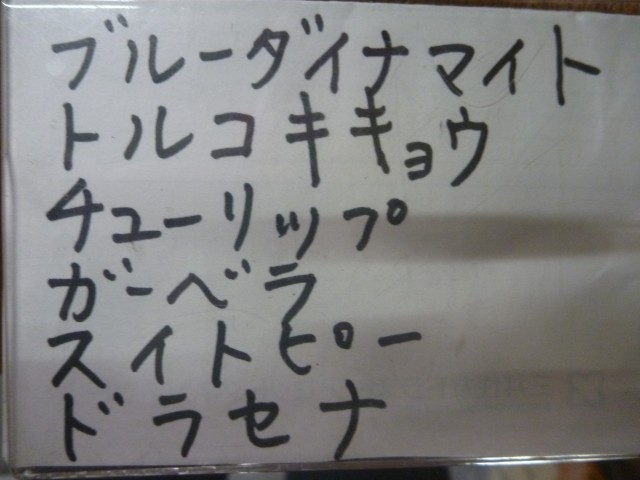 ブルーダイナマイト
トルコキキョウ
チューリップ
ガーベラ
スイトピー
ドラセナ